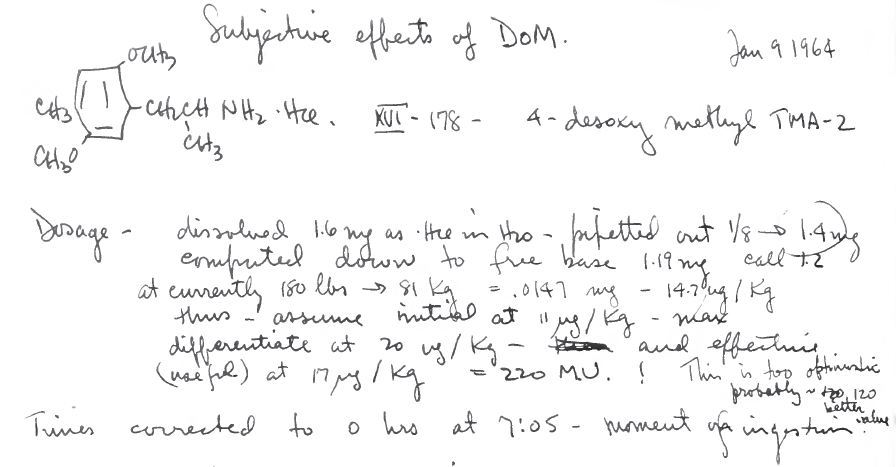 Subjective effects of DOM.
Jan 9 1964
OCH3
CH3 CH2CH NH2 · HCl. XVI - 178 - 4-desoxy methyl TMA-2
CH3
CH3O
Dosage - dissolved 1.6 mg as HCl in H2O - pipetted out 1/8 → 1.4 mg
computed down to free base 1.19 mg call 1.2
at currently 180 lbs → 81 Kg = .0147 mg - 14.7 ug/Kg
thus - assume initial at 11 µg/Kg - max
differentiate at 20 ug/Kg - and effective
(useful) at 17 µg/Kg = 220 M.U. ! This is too optimistic
probably ~ 120
better value
Times corrected to 0 hrs at 7:05 - moment of ingestion.